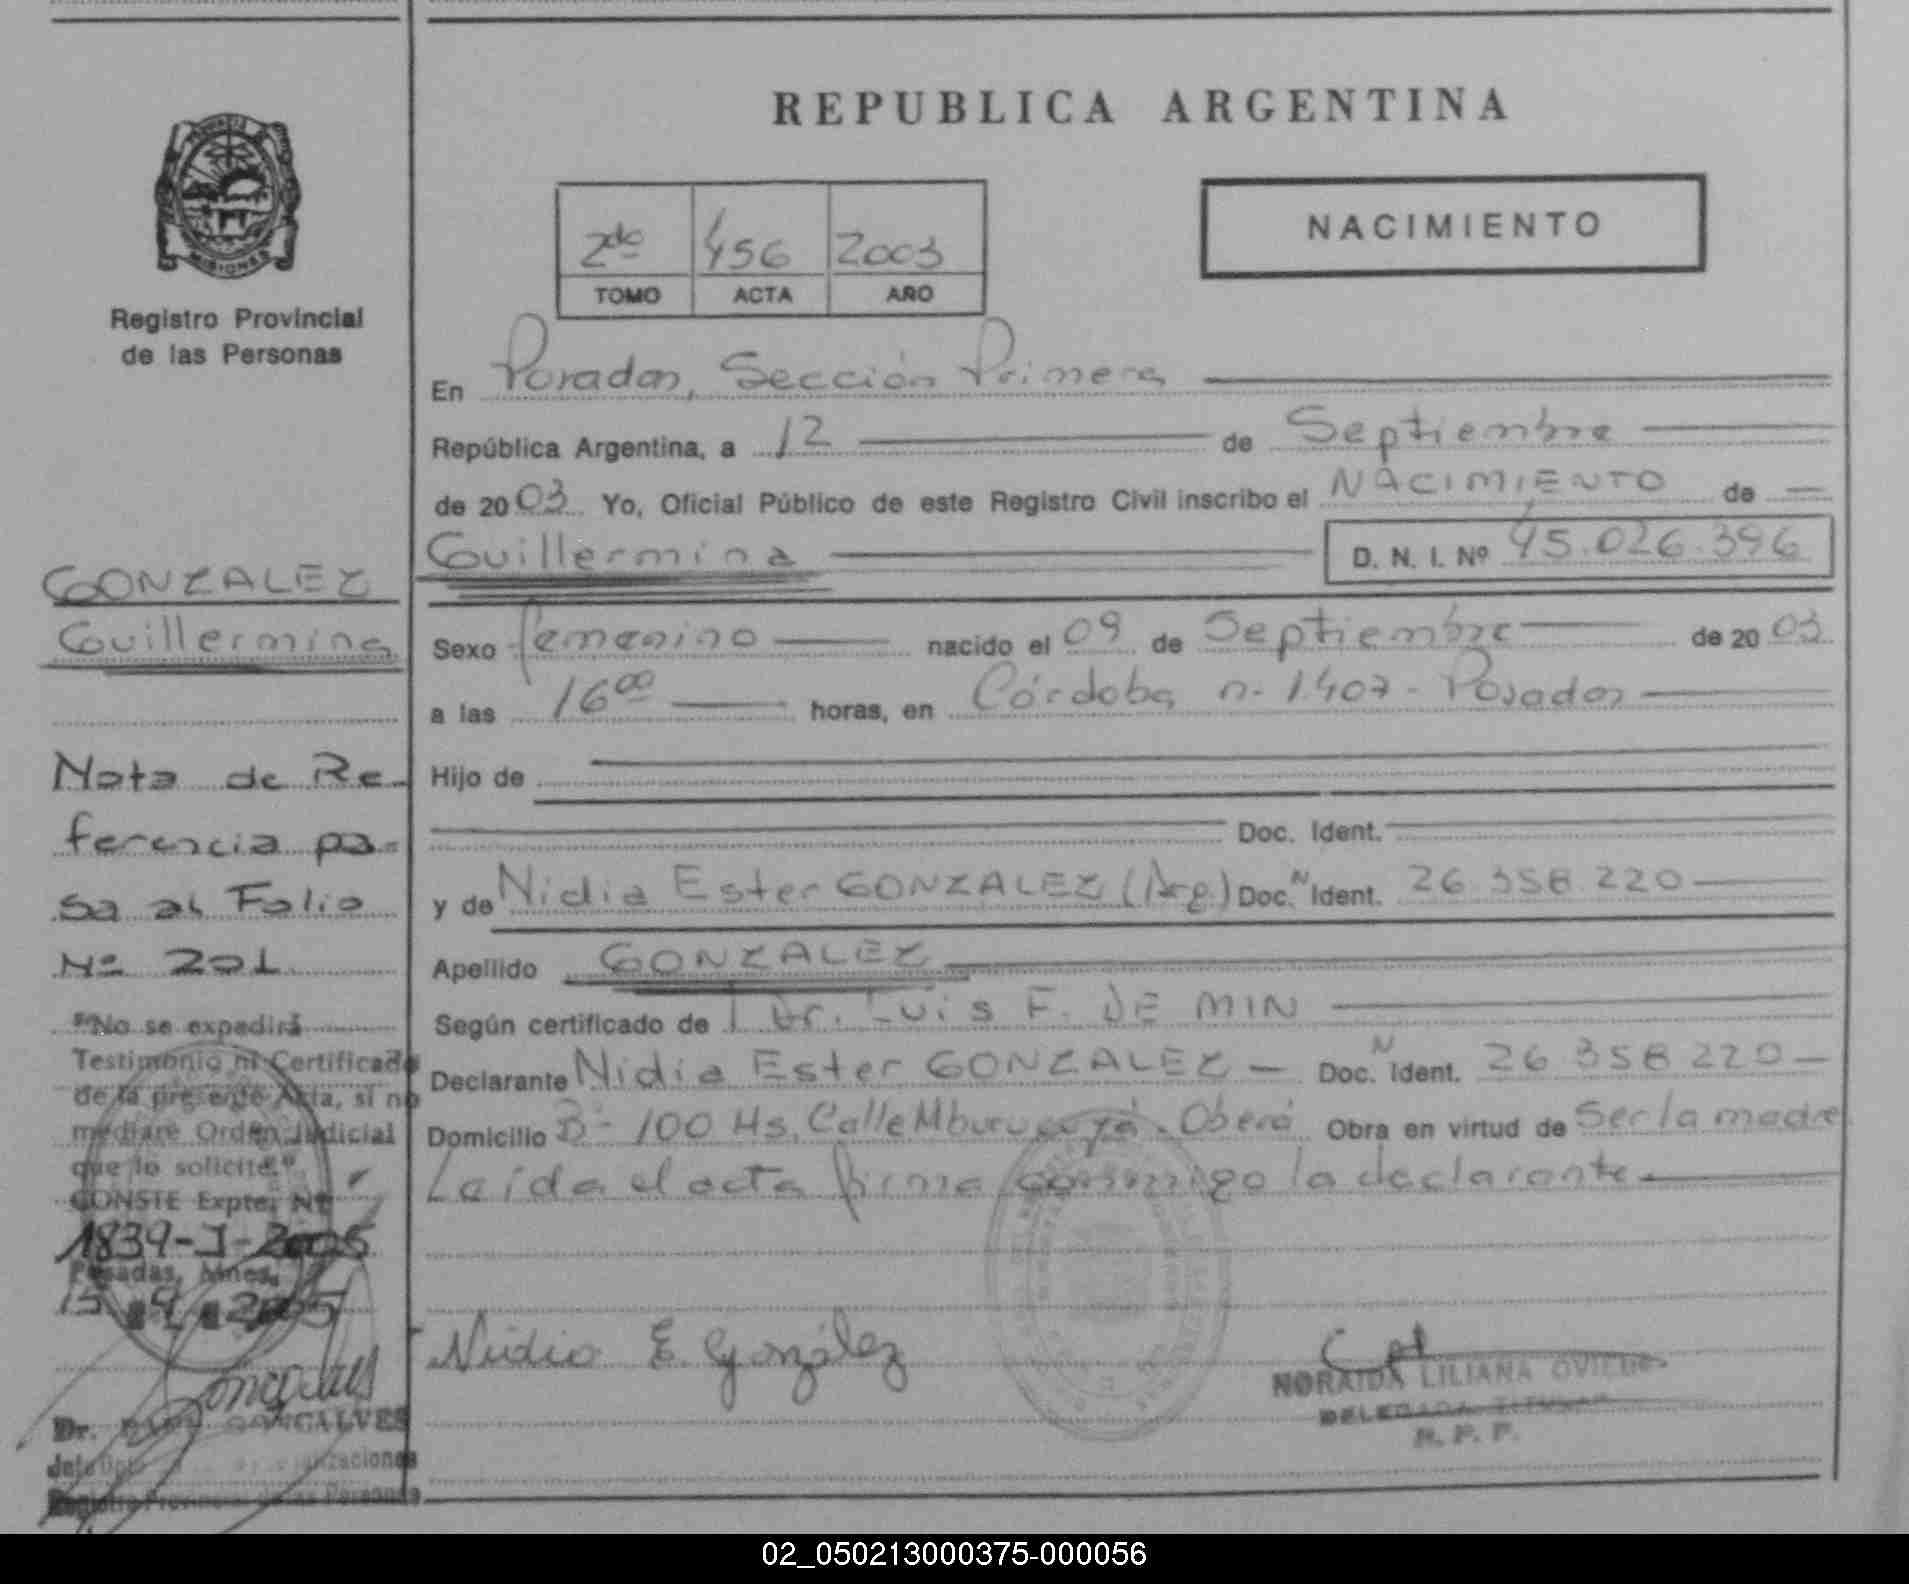 REPUBLICA ARGENTINA
PROVINCIA
MISIONES
Registro Provincial
de las Personas
2do 456 2003
TOMO ACTA AÑO
NACIMIENTO
En Posadas, Sección Primera
República Argentina, a 12 de Septiembre
de 2003 Yo, Oficial Público de este Registro Civil inscribo el NACIMIENTO de
Guillermina D. N. I. Nº 45.026.396
Sexo femenino nacido el 09 de Septiembre de 2003
a las 16 00 horas, en Córdoba n- 1.407 - Posadas
Hijo de
Doc. Ident.
y de Nidia Ester GONZALEZ (Arg.) Doc. N Ident. 26.358.220
Apellido GONZALEZ
Según certificado de Dr. Luis F. DE MIN
Declarante Nidia Ester GONZALEZ - Doc. N Ident. 26 358 220 -
Domicilio Bº 100 Hs. Calle Mburucuyá - Oberá Obra en virtud de Ser la madre
Leída el acta firma conmigo la declarante
Nidia E. González
NORAIDA LILIANA OVIEDO
DELEGADA TITULAR
R. P. P.
GONZALEZ
Guillermina
Nota de Re-
ferencia pa-
sa al Folio
Nº 201
"No se expedirá
Testimonio ni Certificado
de la presente Acta, si no
mediare Orden Judicial
que lo solicite".
CONSTE Expte. Nº
1839-J-2005
Posadas, Mnes.
15 9 2005
Dr. GONCALVES
Jefe Dpto
Registro Provincial de las Personas
02_050213000375-000056